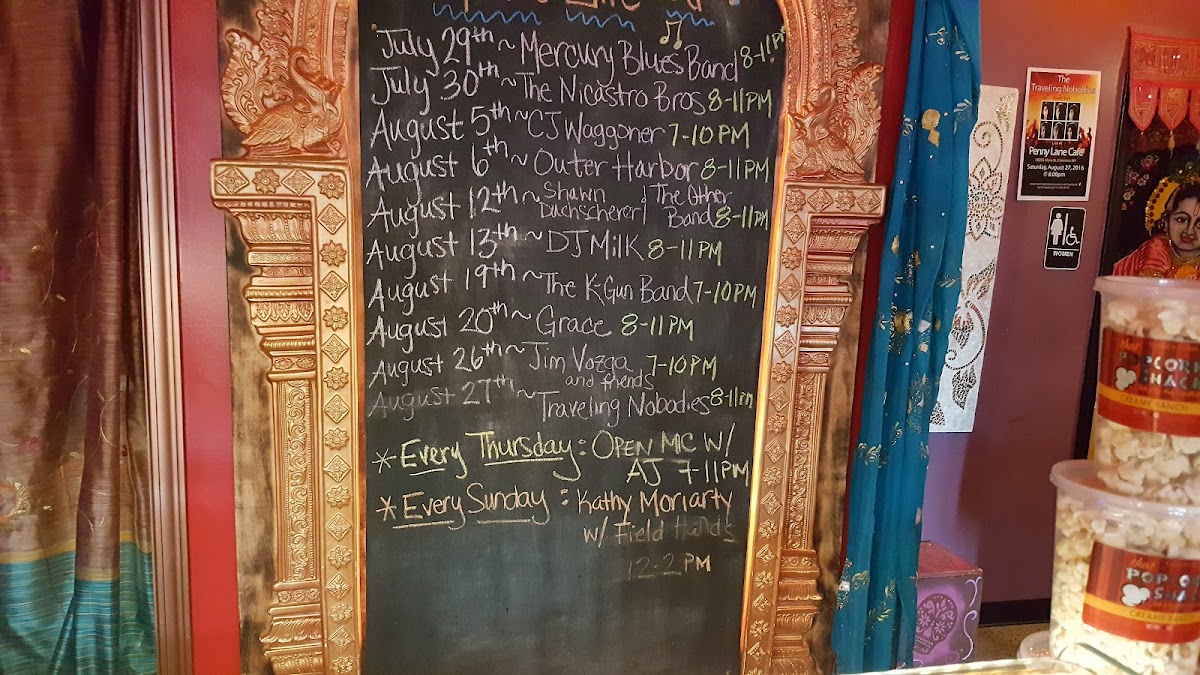 July 29th ~ Mercury Blues Band 8-11PM
July 30th ~ The Nicastro Bros 8-11PM
August 5th ~ CJ Waggoner 7-10PM
August 6th ~ Outer Harbor 8-11PM
August 12th ~ Shawn Duchscherer / The Other Band 8-11PM
August 13th ~ DJ Milk 8-11PM
August 19th ~ The K-Gun Band 7-10PM
August 20th ~ Grace 8-11PM
August 26th ~ Jim Vozga and friends 7-10PM
August 27th ~ Traveling Nobodies 8-11PM
* Every Thursday: OPEN MIC W/
AJ 7-11PM
* Every Sunday: Kathy Moriarty
w/ Field Hands
12-2PM
The
Traveling Nobodies
Penny Lane Cafe
Saturday, August 27, 2016
@ 8:00pm
WOMEN
that
POPCORN
SHACK
CREAMY RANCH
that
POP CO
SHA
CREAMY RANC